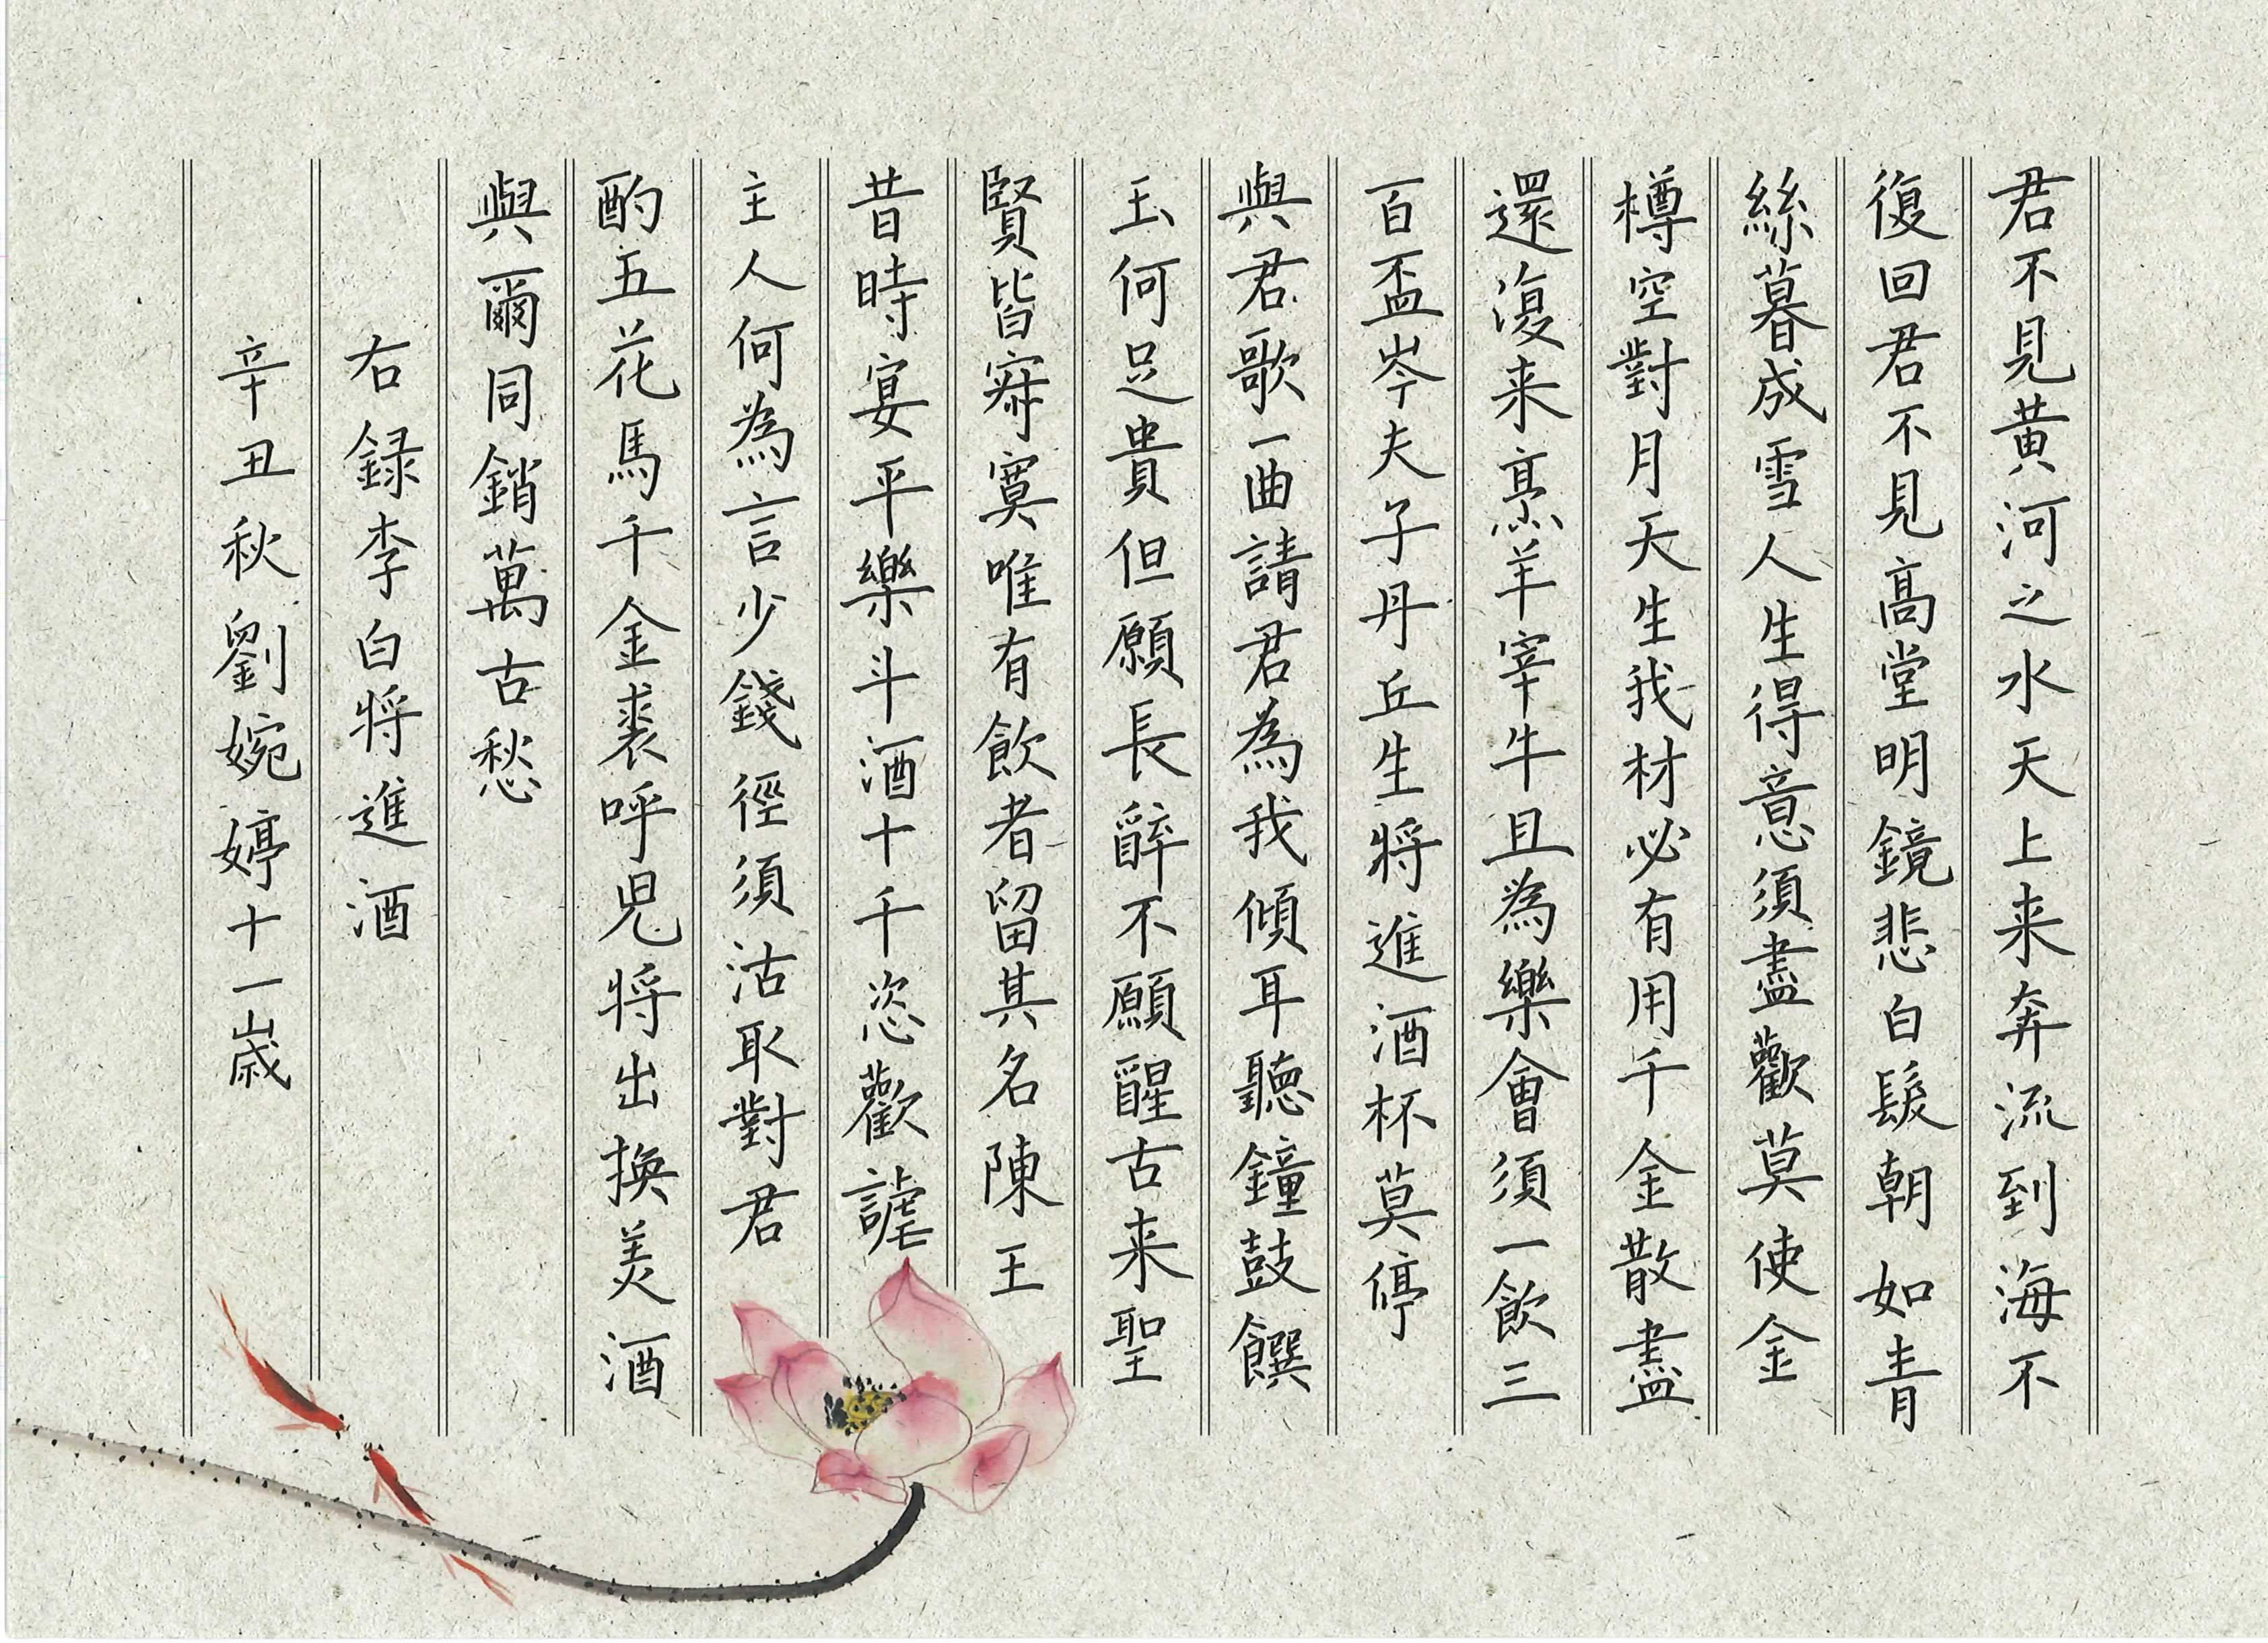 君不見黃河之水天上来奔流到海不
復回君不見高堂明鏡悲白髮朝如青
絲暮成雪人生得意須盡歡莫使金
樽空對月天生我材必有用千金散盡
還復来烹羊宰牛且為樂會須一飲三
百盃岑夫子丹丘生將進酒杯莫停
與君歌一曲請君為我傾耳聽鐘鼓饌
玉何足貴但願長辭不願醒古来聖
賢皆寂寞唯有飲者留其名陳王
昔時宴平樂斗酒十千恣歡謔
主人何為言少錢徑須沽取對君
酌五花馬千金裘呼兒將出換美酒
與爾同銷萬古愁
右録李白將進酒
辛丑秋劉婉婷十一歲